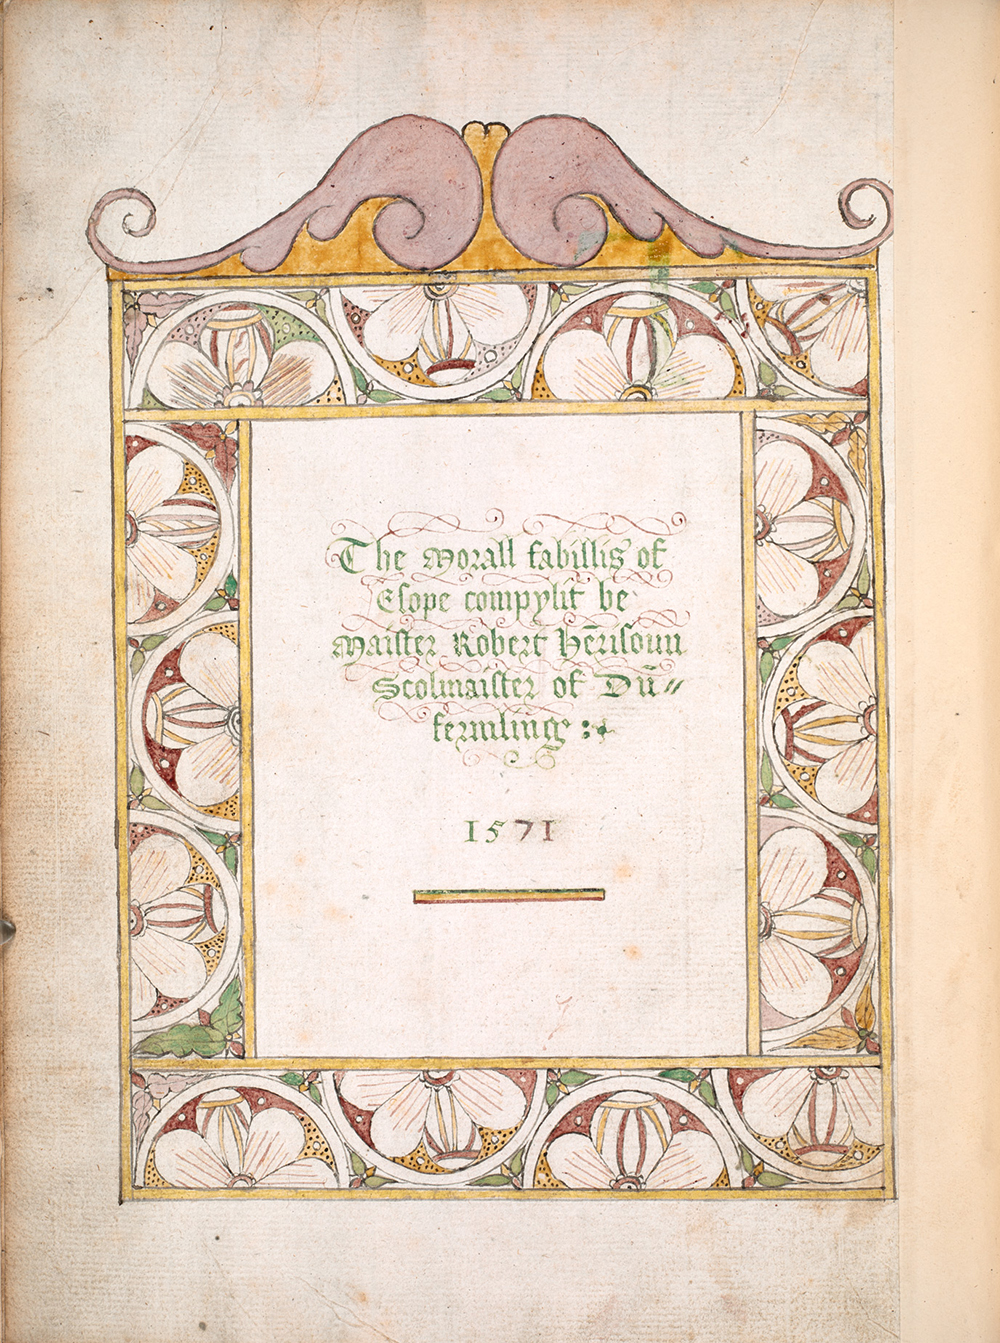 The Morall fabillis of
Esope compylit be
Maister Robert Hēnisoun
Scolmaister of Dū〃
fermling :
1571